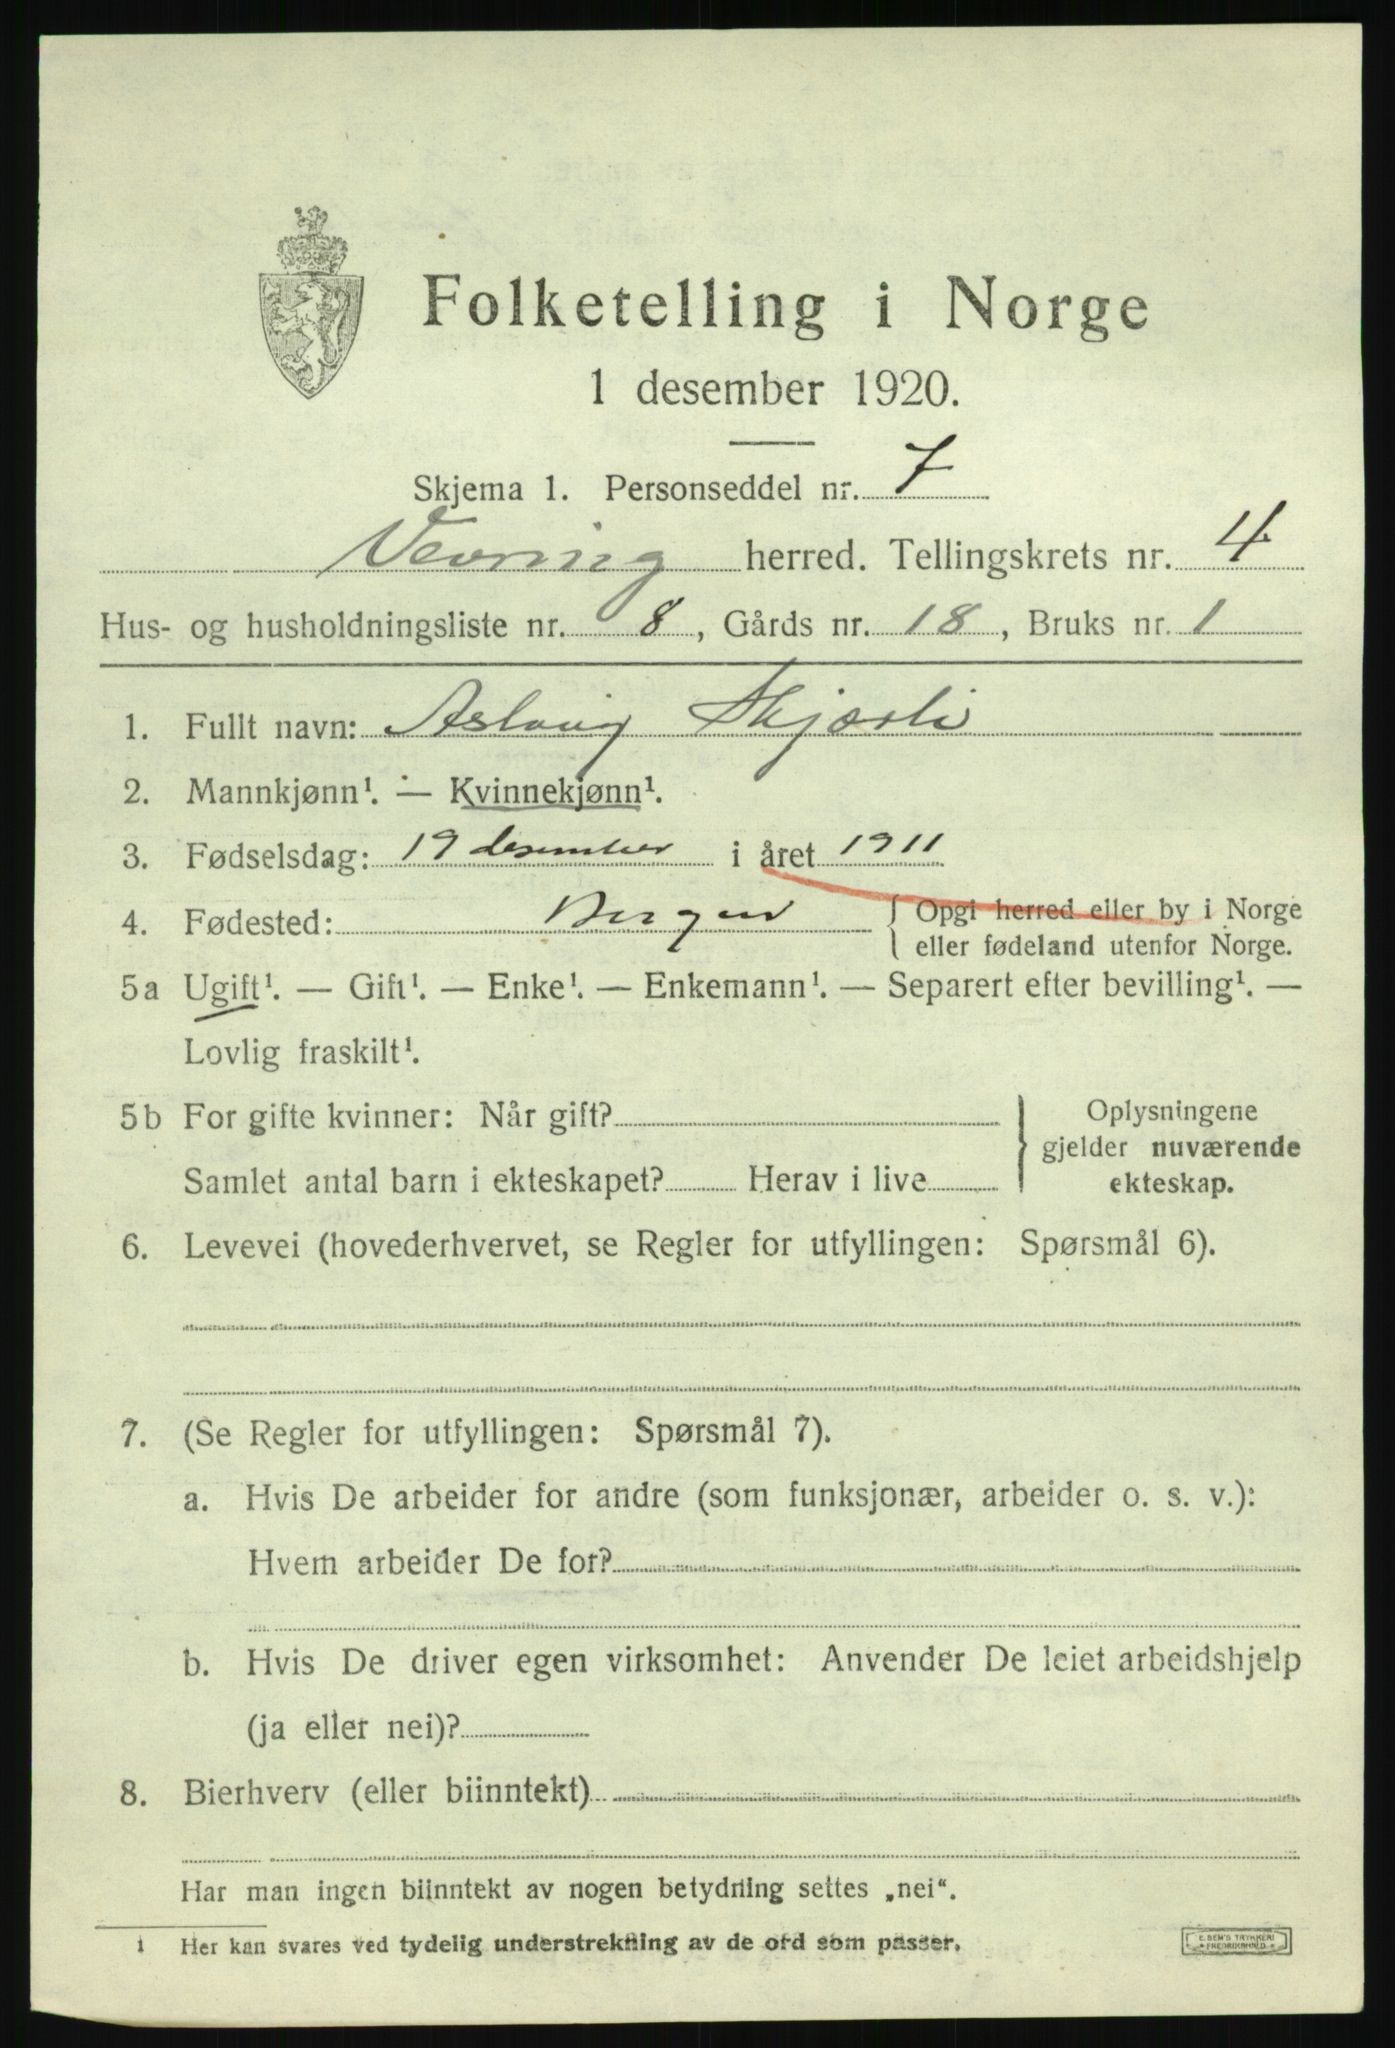 Folketelling i Norge
1 desember 1920.
Skjema 1. Personseddel nr. 7
Vevring herred. Tellingskrets nr. 4
Hus- og husholdningsliste nr. 8, Gårds nr. 18, Bruks nr. 1
1. Fullt navn: Aslaug Skjærli
2. Mannkjønn¹. — Kvinnekjønn¹.
3. Fødselsdag: 19 desember i året 1911
4. Fødested: Bergen { Opgi herred eller by i Norge
eller fødeland utenfor Norge.
5a Ugift¹. — Gift¹. — Enke¹. — Enkemann¹. — Separert efter bevilling¹. —
Lovlig fraskilt¹.
5b For gifte kvinner: Når gift?
Samlet antal barn i ekteskapet? Herav i live
} Oplysningene
gjelder nuværende
ekteskap.
6. Levevei (hovederhvervet, se Regler for utfyllingen: Spørsmål 6).
7. (Se Regler for utfyllingen: Spørsmål 7).
a. Hvis De arbeider for andre (som funksjonær, arbeider o. s. v.):
Hvem arbeider De for?
b. Hvis De driver egen virksomhet: Anvender De leiet arbeidshjelp
(ja eller nei)?
8. Bierhverv (eller biinntekt)
Har man ingen biinntekt av nogen betydning settes „nei“.
1 Her kan svares ved tydelig understrekning av de ord som passer.
E. SEM'S TRYKKERI
FREDRIKSHALD